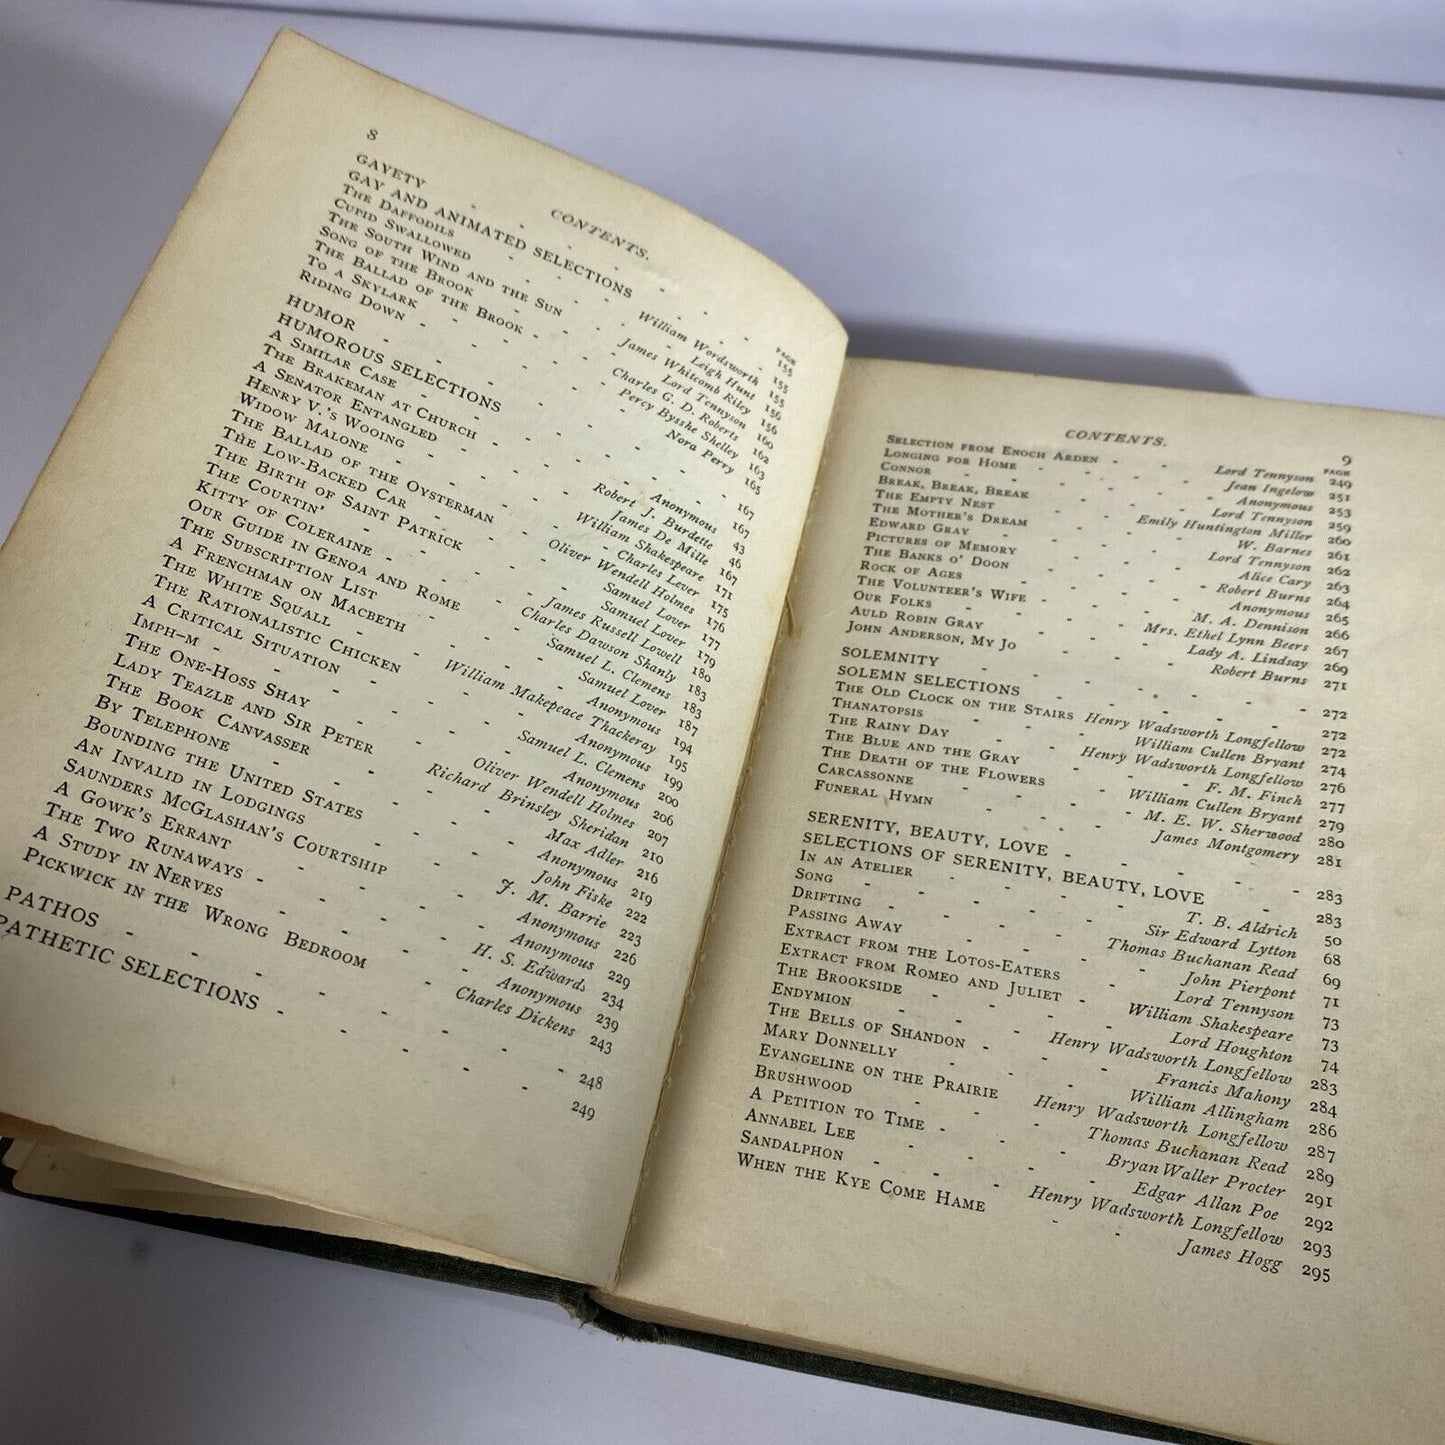 8
CONTENTS.
PAGE
GAYETY - - - - 155
GAY AND ANIMATED SELECTIONS - - 155
The Daffodils - - William Wordsworth 155
Cupid Swallowed - - Leigh Hunt 156
The South Wind and the Sun - James Whitcomb Riley 156
Song of the Brook - - Lord Tennyson 160
The Ballad of the Brook - Charles G. D. Roberts 162
To a Skylark - - Percy Bysshe Shelley 163
Riding Down - - Nora Perry 165
HUMOR - - - - 167
HUMOROUS SELECTIONS - - 167
A Similar Case - - Anonymous 43
The Brakeman at Church - Robert J. Burdette 46
A Senator Entangled - James De Mille 167
Henry V.'s Wooing - William Shakespeare 171
Widow Malone - - Charles Lever 175
The Ballad of the Oysterman - Oliver Wendell Holmes 176
The Low-Backed Car - - Samuel Lover 177
The Birth of Saint Patrick - Samuel Lover 179
The Courtin' - - James Russell Lowell 180
Kitty of Coleraine - Charles Dawson Shanly 183
Our Guide in Genoa and Rome - Samuel L. Clemens 183
The Subscription List - - Samuel Lover 187
A Frenchman on Macbeth - - Anonymous 194
The White Squall - William Makepeace Thackeray 195
The Rationalistic Chicken - Anonymous 199
A Critical Situation - Samuel L. Clemens 200
Imph-m - - - Anonymous 206
The One-Hoss Shay - Oliver Wendell Holmes 207
Lady Teazle and Sir Peter - Richard Brinsley Sheridan 210
The Book Canvasser - - Max Adler 216
By Telephone - - Anonymous 219
Bounding the United States - John Fiske 222
An Invalid in Lodgings - J. M. Barrie 223
Saunders McGlashan's Courtship - Anonymous 226
A Gowk's Errant - - Anonymous 229
The Two Runaways - - H. S. Edwards 234
A Study in Nerves - - Anonymous 239
Pickwick in the Wrong Bedroom - Charles Dickens 243
PATHOS - - - - 248
PATHETIC SELECTIONS - - - 249
CONTENTS.
9
PAGE
Selection from Enoch Arden - - Lord Tennyson 249
Longing for Home - - Jean Ingelow 251
Connor - - - Anonymous 253
Break, Break, Break - - Lord Tennyson 259
The Empty Nest - Emily Huntington Miller 260
The Mother's Dream - - W. Barnes 261
Edward Gray - - Lord Tennyson 262
Pictures of Memory - - Alice Cary 263
The Banks o' Doon - - Robert Burns 264
Rock of Ages - - Anonymous 265
The Volunteer's Wife - - M. A. Dennison 266
Our Folks - - Mrs. Ethel Lynn Beers 267
Auld Robin Gray - - Lady A. Lindsay 269
John Anderson, My Jo - - Robert Burns 271
SOLEMNITY - - - -
SOLEMN SELECTIONS - - - 272
The Old Clock on the Stairs Henry Wadsworth Longfellow 272
Thanatopsis - - William Cullen Bryant 274
The Rainy Day - Henry Wadsworth Longfellow 276
The Blue and the Gray - - F. M. Finch 277
The Death of the Flowers - William Cullen Bryant 279
Carcassonne - - M. E. W. Sherwood 280
Funeral Hymn - - James Montgomery 281
SERENITY, BEAUTY, LOVE - - - 283
SELECTIONS OF SERENITY, BEAUTY, LOVE - 283
In an Atelier - - T. B. Aldrich 50
Song - - - Sir Edward Lytton 68
Drifting - - Thomas Buchanan Read 69
Passing Away - - John Pierpont 71
Extract from the Lotos-Eaters - Lord Tennyson 73
Extract from Romeo and Juliet - William Shakespeare 73
The Brookside - - Lord Houghton 74
Endymion - - Henry Wadsworth Longfellow 283
The Bells of Shandon - - Francis Mahony 284
Mary Donnelly - - William Allingham 286
Evangeline on the Prairie Henry Wadsworth Longfellow 287
Brushwood - - Thomas Buchanan Read 289
A Petition to Time - Bryan Waller Procter 291
Annabel Lee - - Edgar Allan Poe 292
Sandalphon - - Henry Wadsworth Longfellow 293
When the Kye Come Hame - - James Hogg 295